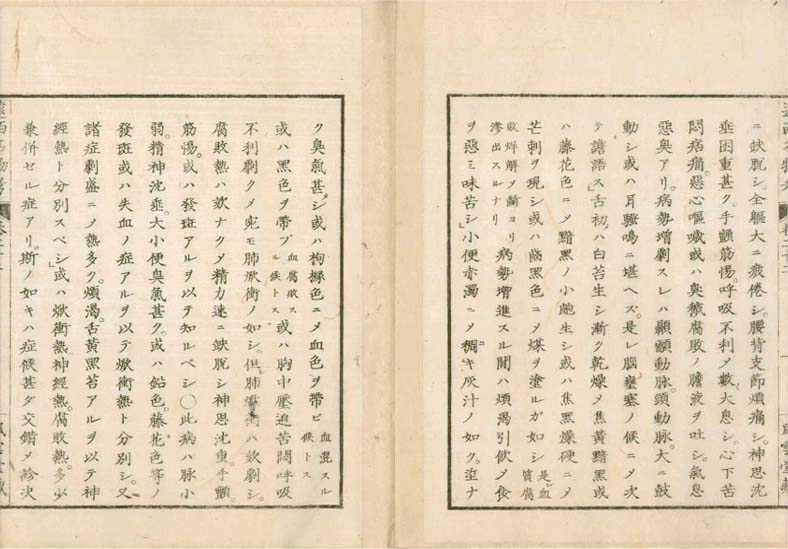 ニ鈌脱シ。全軀大ニ疲倦シ。腰背支節煩痛シ。神思沈
垂困重甚ク。手顫筋惕。呼吸不利メ數大息シ。心下苦
悶疞痛。惡心嘔噦或ハ臭穢腐敗ノ膽液ヲ吐シ。氣息
惡臭アリ。病勢增劇スレハ顳顬動脉。頭動脉。大ニ鼓
動シ或ハ耳騷鳴ニ堪ヘズ。是レ腦壅塞ノ候ニメ次
テ譫語ス」舌初ハ白苔生シ漸ク乾燥メ焦黃黯黑或
ハ藤花色ニメ黯黑ノ小皰生シ或ハ焦黑燥硬ニメ
芒刺ヲ現シ或ハ齒黑色ニメ煤ヲ塗ルガ如シ 是レ血質腐
敗烊解ヲ齗ヨリ滲出スルナリ 病勢增進スル間ハ煩渴引飮メ食
ヲ惡ミ味苦シ」小便赤濁ニメ稠キ灰汁ノ如ク。滓ナ
ク臭氣甚ダシ或ハ枸櫞色ニメ血色ヲ帶ビ 血混スル候トス
或ハ黑色ヲ帶ブ 血腐敗スル候トス 或ハ胸中壓迫苦悶呼吸
不利劇クメ宛モ肺焮衝ノ如シ。但肺焮衝ハ焮劇シ。
腐敗熱ハ焮ナクメ精力速ニ鈌脱シ神思沈重。手顫。
筋惕。或ハ發斑アルヲ以テ知ルベシ○此病ハ脉小
弱。精神沈垂。大小便臭氣甚ク。或ハ鉛色。藤花色等ノ
發斑或ハ失血ノ症アルヲ以テ焮衝熱ト分別シ。又
諸症劇盛ニメ熱多ク。煩渴。舌黃黑苔アルヲ以テ神
經熱ト分別スベシ」或ハ焮衝熱。神經熱。腐敗熱。多少
兼倂セル症アリ。斯ノ如キハ症候甚ダ交錯メ診次